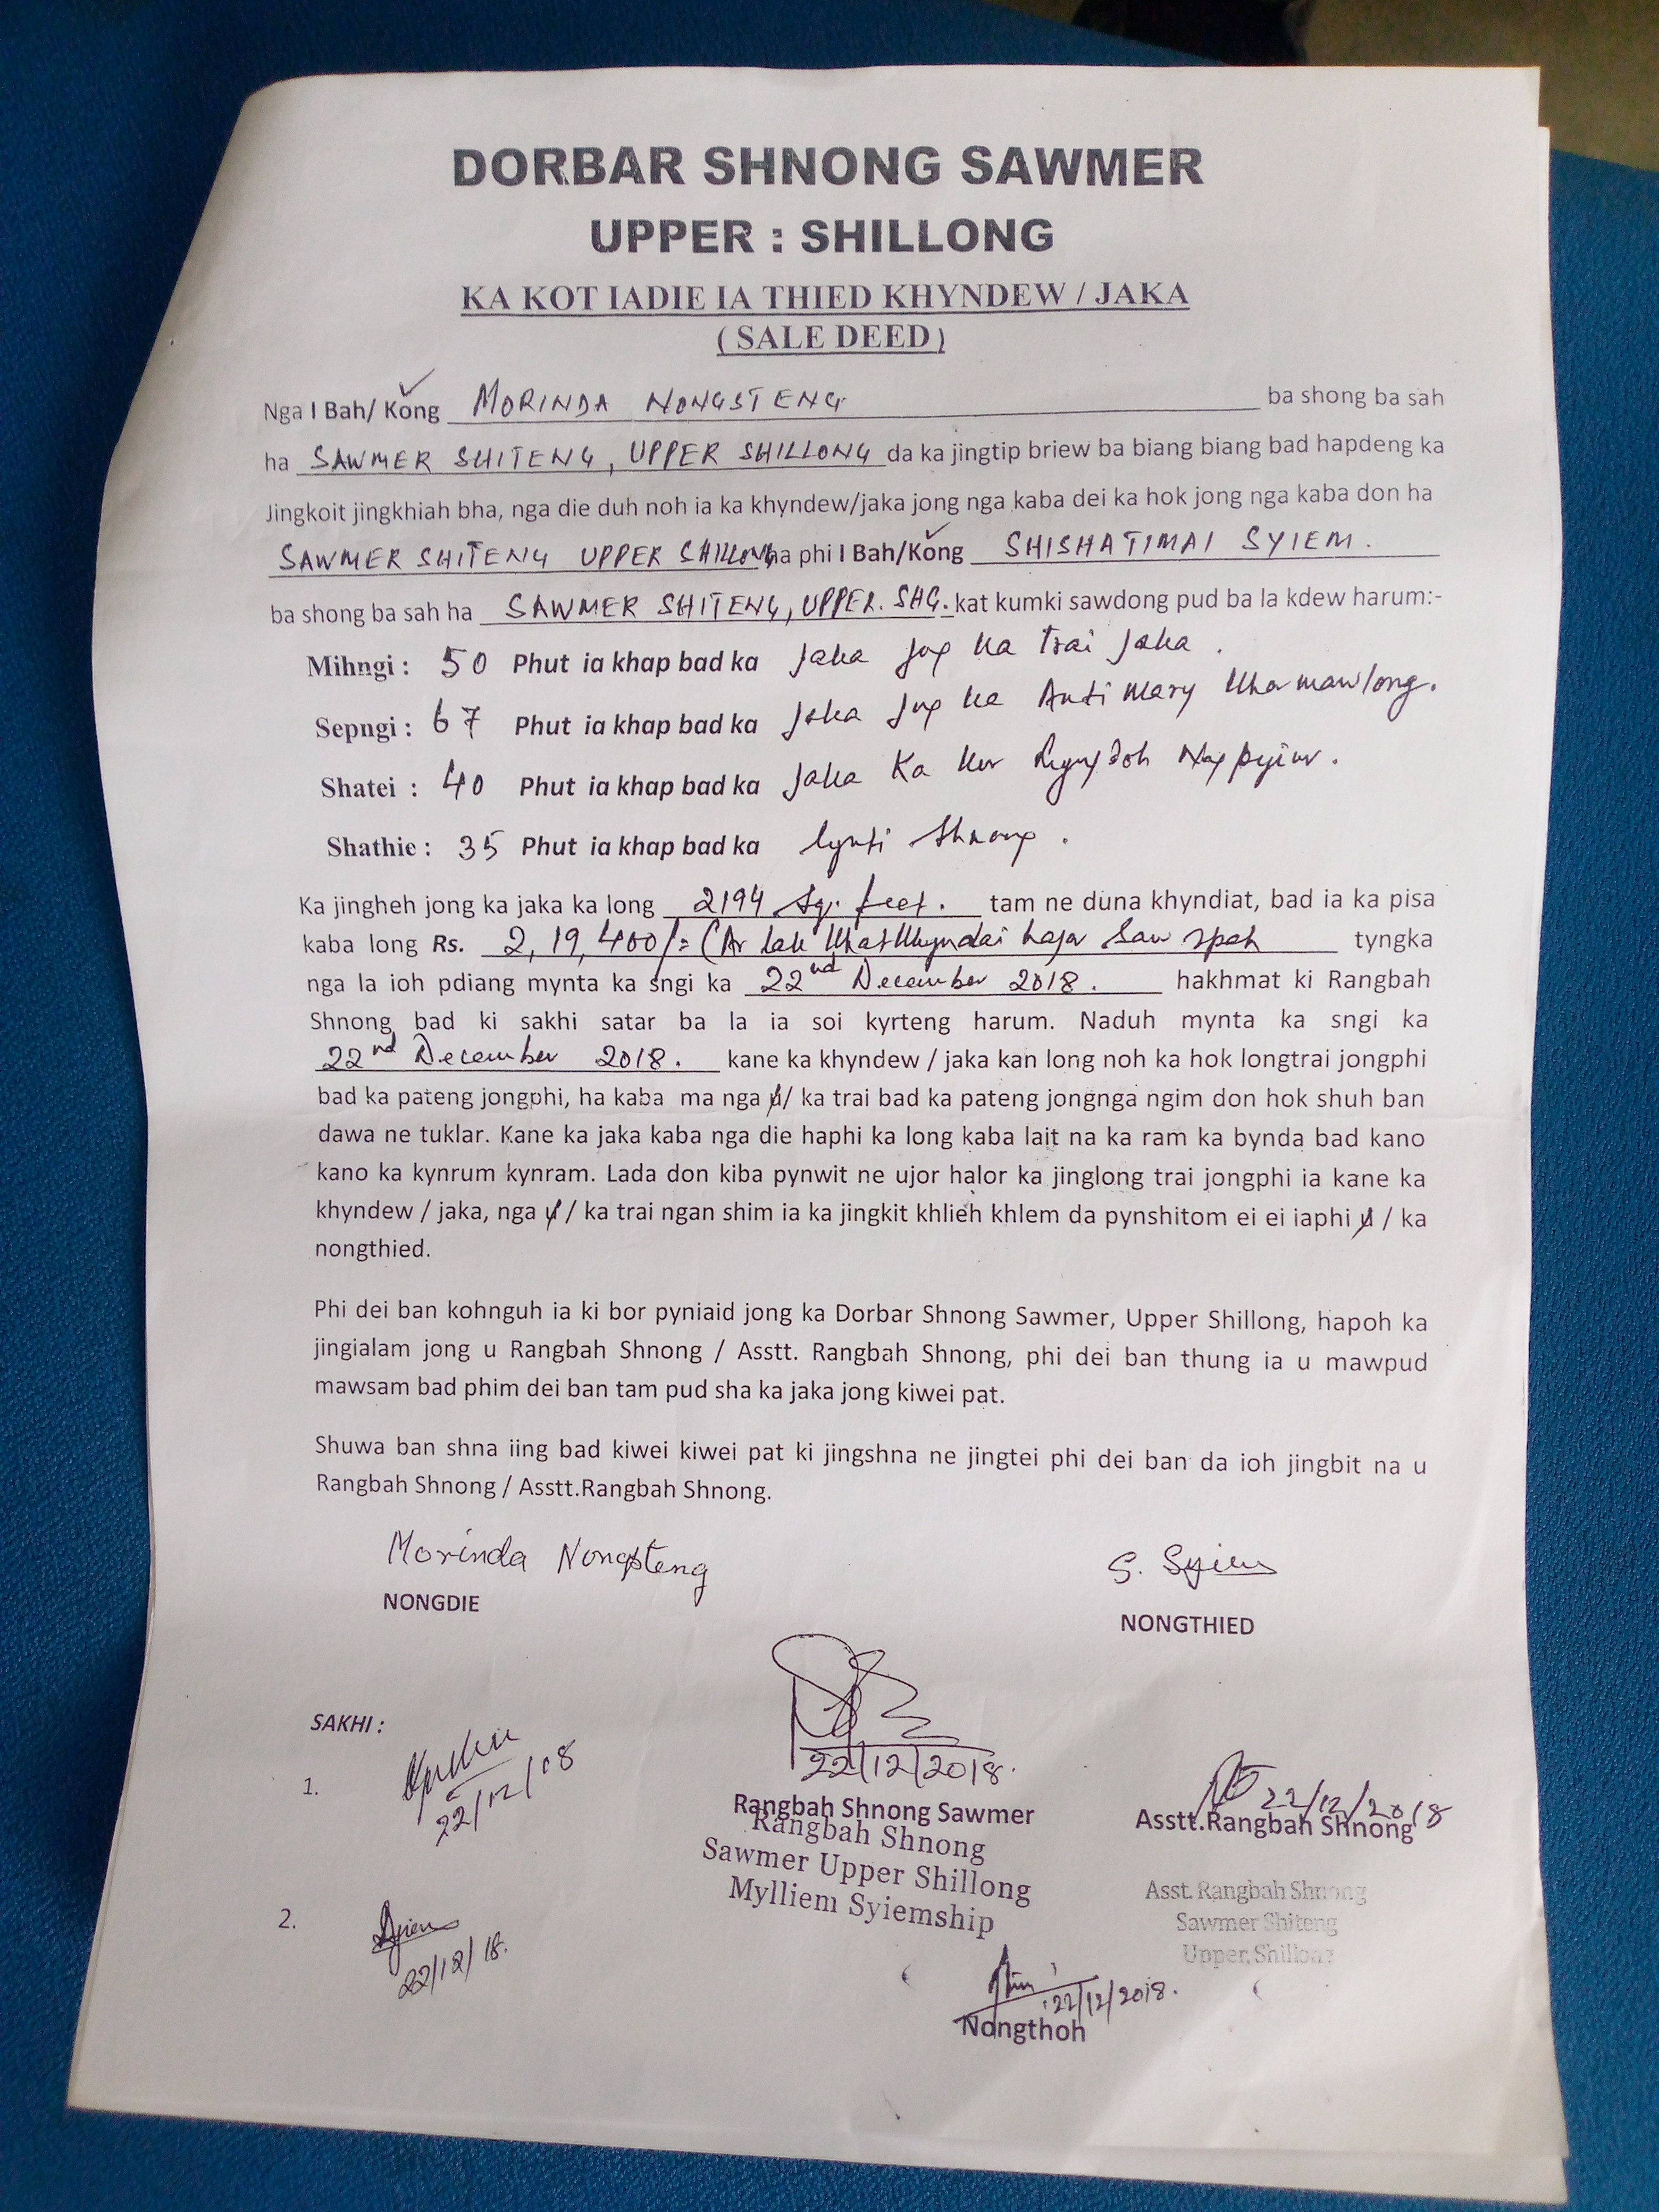 DORBAR SHNONG SAWMER
UPPER : SHILLONG
KA KOT IADIE IA THIED KHYNDEW / JAKA
( SALE DEED )
Nga I Bah/ Kong MORINDA NONGSTENG ba shong ba sah
ha SAWMER SHITENG, UPPER SHILLONG da ka jingtip briew ba biang biang bad hapdeng ka
Jingkoit jingkhiah bha, nga die duh noh ia ka khyndew/jaka jong nga kaba dei ka hok jong nga kaba don ha
SAWMER SHITENG UPPER SHILLONG ha phi I Bah/Kong SHISHATIMAI SYIEM.
ba shong ba sah ha SAWMER SHITENG, UPPER. SHG. kat kumki sawdong pud ba la kdew harum:-
Mihngi : 50 Phut ia khap bad ka Jaka jog ka trai Jaka.
Sepngi : 67 Phut ia khap bad ka Jaka jog ka Anti Mary Kharmawlong.
Shatei : 40 Phut ia khap bad ka Jaka Ka kur
Shathie : 35 Phut ia khap bad ka lynti Shnong.
Ka jingheh jong ka jaka ka long 2194 Sq. feet. tam ne duna khyndiat, bad ia ka pisa
kaba long Rs. 2,19,400/= (Ar lak Khatkhyndai hajar Saw spah tyngka
nga la ioh pdiang mynta ka sngi ka 22nd December 2018. hakhmat ki Rangbah
Shnong bad ki sakhi satar ba la ia soi kyrteng harum. Naduh mynta ka sngi ka
22nd December 2018. kane ka khyndew / jaka kan long noh ka hok longtrai jongphi
bad ka pateng jongphi, ha kaba ma nga u/ ka trai bad ka pateng jongnga ngim don hok shuh ban
dawa ne tuklar. Kane ka jaka kaba nga die haphi ka long kaba lait na ka ram ka bynda bad kano
kano ka kynrum kynram. Lada don kiba pynwit ne ujor halor ka jinglong trai jongphi ia kane ka
khyndew / jaka, nga u / ka trai ngan shim ia ka jingkit khlieh khlem da pynshitom ei ei iaphi u / ka
nongthied.
Phi dei ban kohnguh ia ki bor pyniaid jong ka Dorbar Shnong Sawmer, Upper Shillong, hapoh ka
jingialam jong u Rangbah Shnong / Asstt. Rangbah Shnong, phi dei ban thung ia u mawpud
mawsam bad phim dei ban tam pud sha ka jaka jong kiwei pat.
Shuwa ban shna iing bad kiwei kiwei pat ki jingshna ne jingtei phi dei ban da ioh jingbit na u
Rangbah Shnong / Asstt.Rangbah Shnong.
Morinda Nongsteng
S. Syiem
NONGDIE
NONGTHIED
SAKHI :
1.
22/12/08
22/12/2018.
Rangbah Shnong Sawmer
Rangbah Shnong
Sawmer Upper Shillong
Mylliem Syiemship
22/12/2018
Asstt.Rangbah Shnong
Asst. Rangbah Shnong
Sawmer Shiteng
Upper, Shillong
2. Syiem
22/12/18.
22/12/2018.
Nongthoh